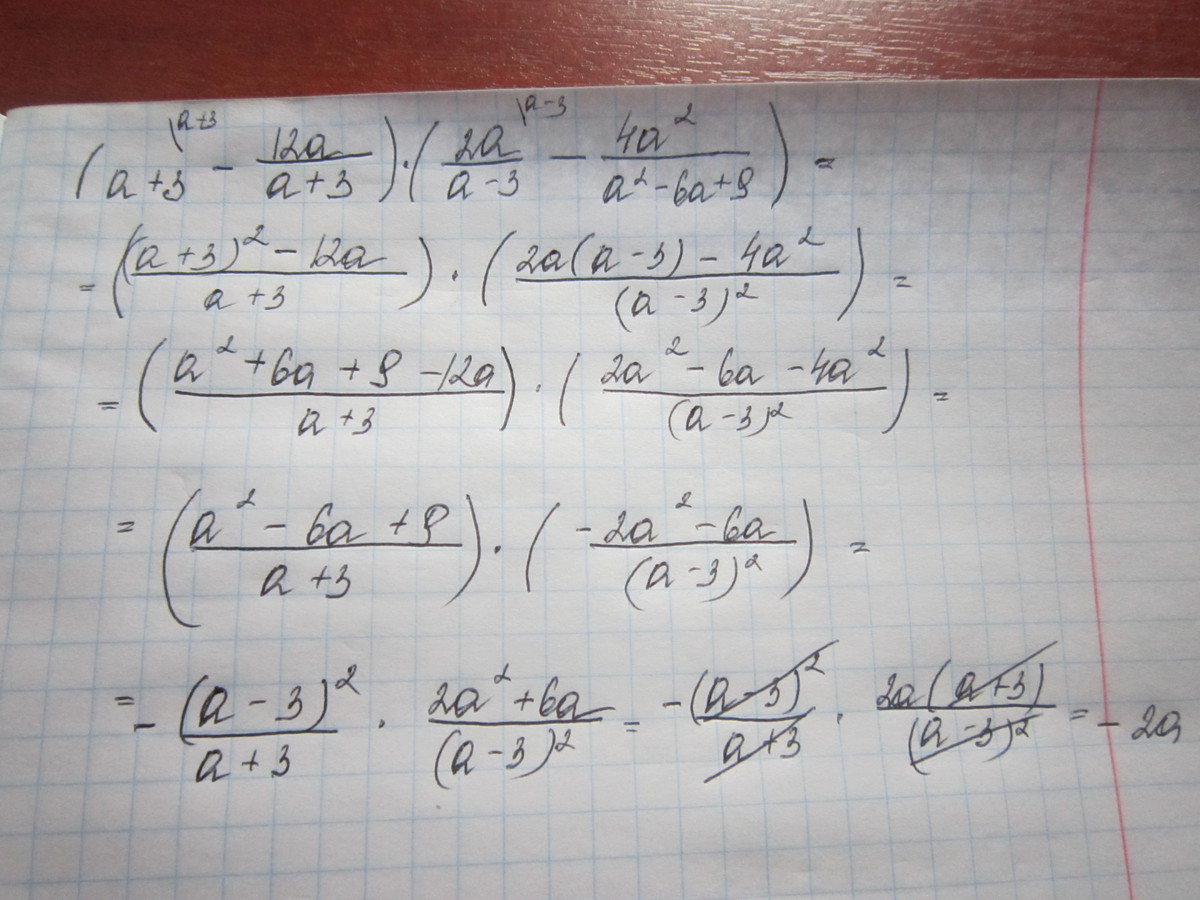 (a+3 \a+3 - 12a/(a+3)) · (2a/(a-3) \a-3 - 4a²/(a²-6a+9)) =
= ((a+3)² - 12a)/(a+3)) · ((2a(a-3) - 4a²)/(a-3)²) =
= ((a² + 6a + 9 - 12a)/(a+3)) · ((2a² - 6a - 4a²)/(a-3)²) =
= ((a² - 6a + 9)/(a+3)) · ((-2a² - 6a)/(a-3)²) =
= - (a-3)²/(a+3) · (2a² + 6a)/(a-3)² = -(a-3)²/(a+3) · 2a(a+3)/(a-3)² = - 2a